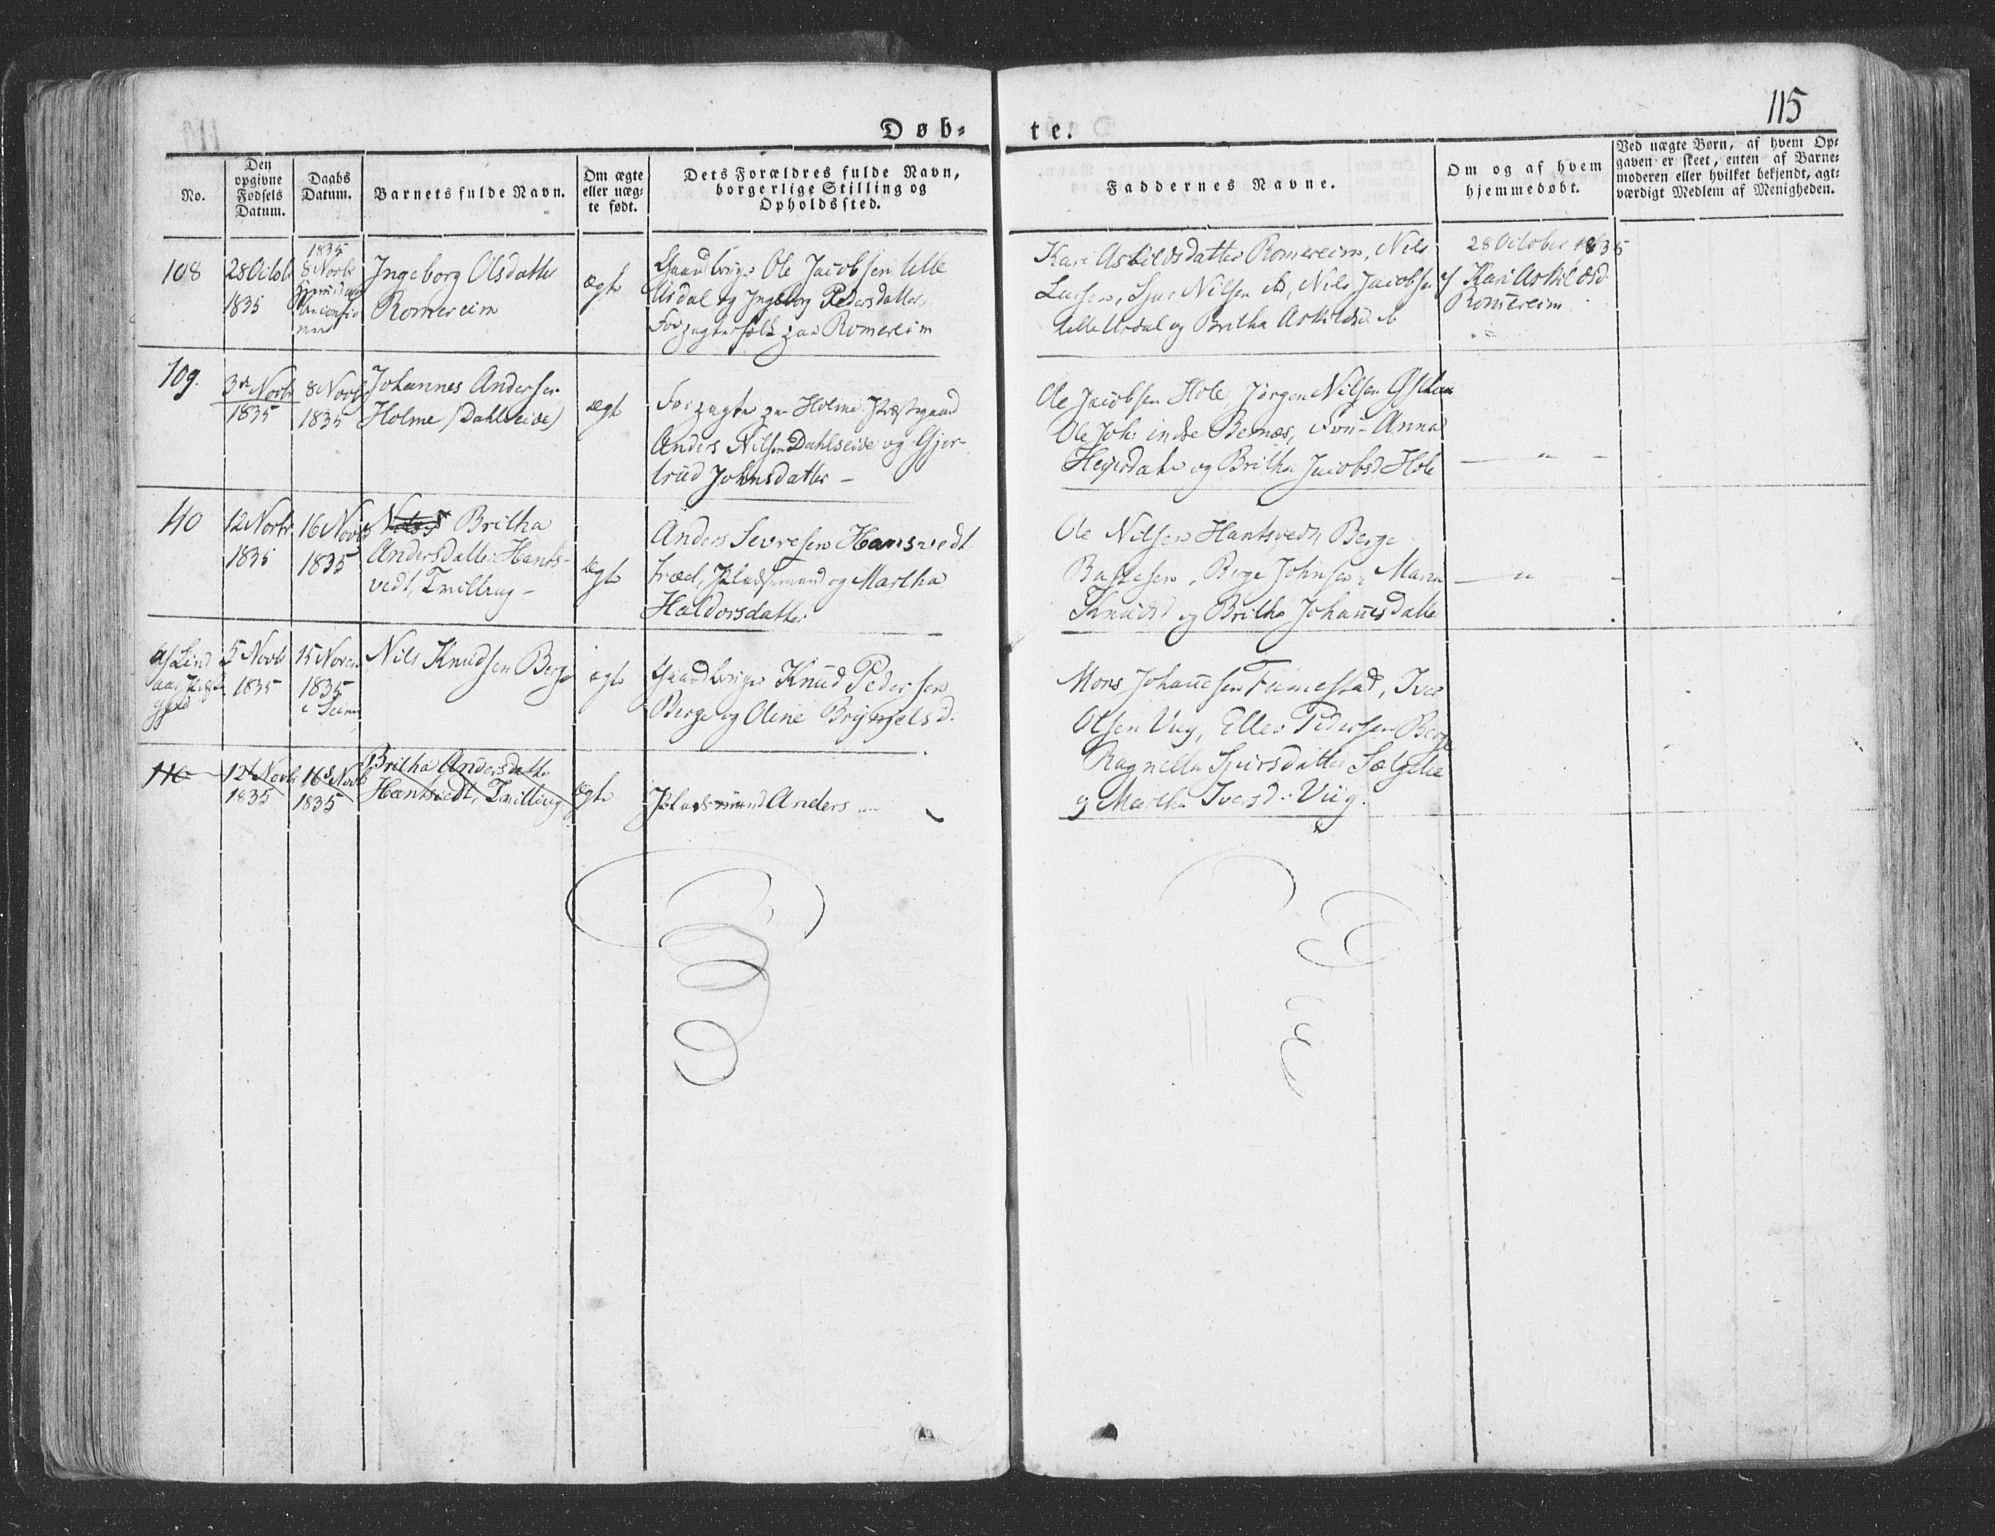 115
Døb-
te.
No.
Den opgivne Fødsels Datum.
Daabs Datum.
Barnets fulde Navn.
Om ægte eller uæg-te født.
Dets Forældres fulde Navn, borgerlige Stilling og Opholdssted.
Faddernes Navne.
Om og af hvem hjemmedøbt.
Ved uægte Børn, af hvem Op-
gaven er skeet, enten af Barne-
moderen eller hvilket bekjendt, agt-
værdigt Medlem af Menigheden.
108
28 Octob
1835
1835
8 Novb
Ingeborg Olsdatter
Romereim
ægte
Gaardbruger Ole Jacobsen lille
Urdal og Ingeborg Pedersdatter
Forpagterfolk paa Romereim
Kari Askildsdatter Romereim, Nils
Larsen, Sjur Nilsen ib, Nils Jacobsen
lille Urdal og Britha Askildsd ib
28 October 1835
af Kari Askildsd
Romereim
109.
3die Novbr
1835
8 Novb
1835
Johannes Andersen
Holme (Dahlseide)
ægte
Forpagter paa Holme Præstegaard
Anders Nilsen Dahlseide og Gjer-
trud Johnsdatter -
Ole Jacobsen Hole Jørgen Nilsen
Ole Joh Bernæs, Fru Anna
Heyerdahl og Britha Jacobsd Hole
- " -
40
12 Novbr
1835
16 Novb
1835
Britha
Andersdatter Hants-
vedt, Tvilling -
ægte
Anders Sevresen Hansvedt
træet, Pladsmand og Martha
Haldorsdatter
Ole Nilsen Hantsvedt, Berge
Bastesen, Berge Johnsen, Maria
Knudsd og Britha Johannesdatter
- " -
af Lind
aas Præste
gjeld
5 Novb
1835
15 Novem
1835
i Seim
Nils Knudsen Berge
ægte
Gaardbruger Knud Pedersen
Berge og Oline Brynjelsd.
Mons Johannesen Fammestad, Iver
Olsen Viig, Elles Pedersen Berge
Ragnella Sjursdatter Sælelie
og Martha Iversd: Viig.
110
12t Novb
1835
16d Novb
1835
Britha Andersdatter
Hantsvedt, Tvilling
ægte
Pladsmand Anders